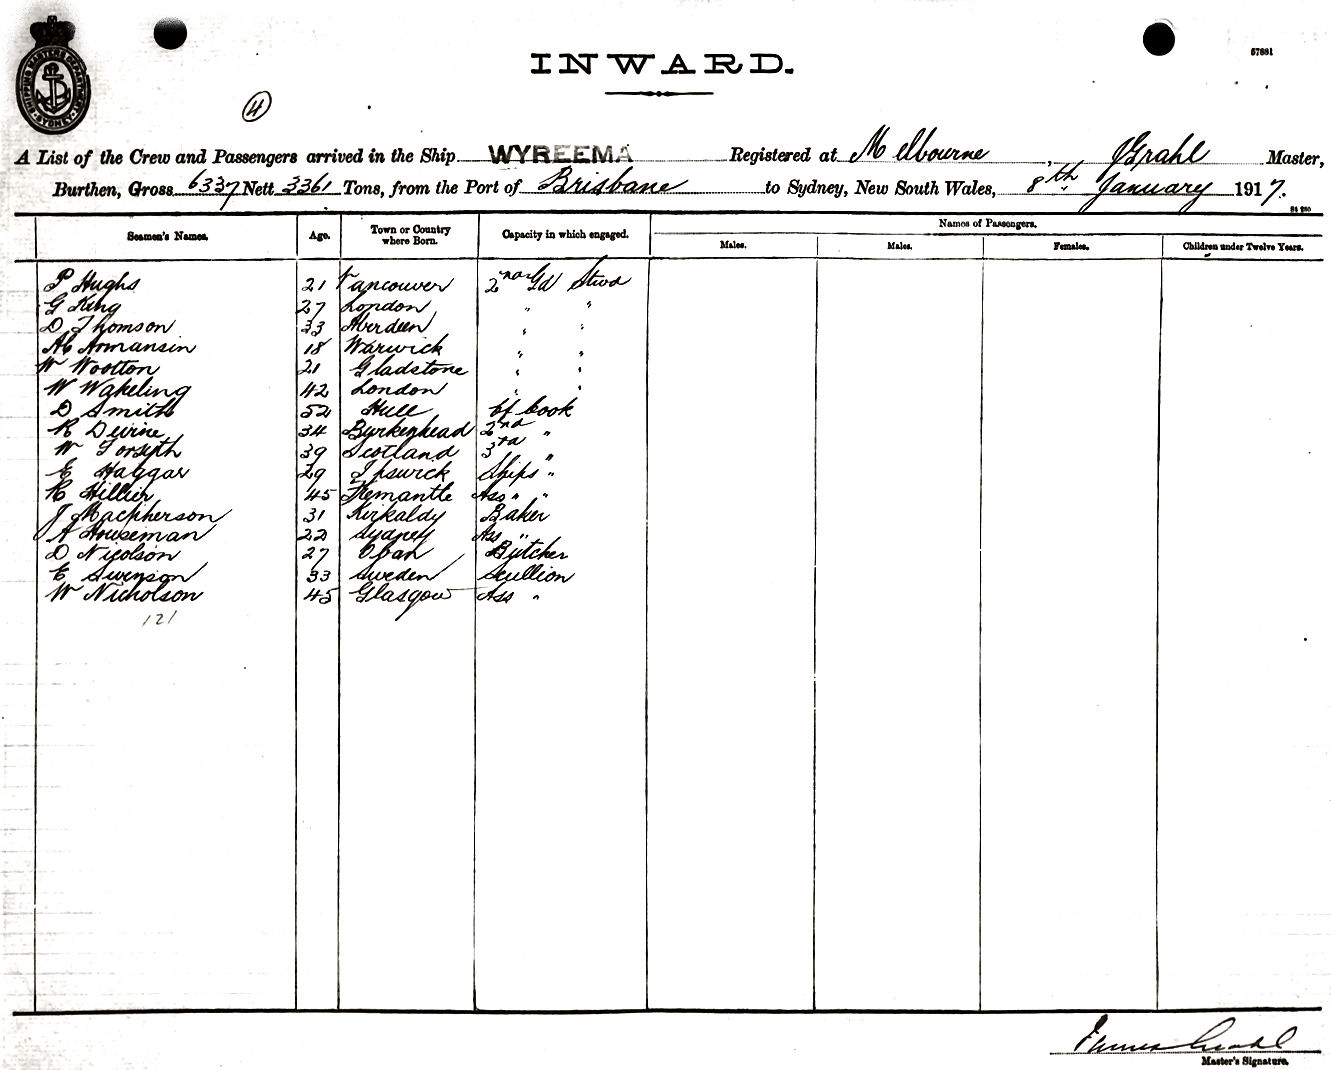 SHIPPING MASTERS DEPARTMENT SYDNEY
57881
INWARD.
4
A List of the Crew and Passengers arrived in the Ship WYREEMA Registered at Melbourne, J Grahl Master,
Burthen, Gross 6337 Nett 3361 Tons, from the Port of Brisbane to Sydney, New South Wales, 8th January 1917.
Seamen's Names. Age. Town or Country where Born. Capacity in which engaged. Names of Passengers.
Males. Males. Females. Children under Twelve Years.
P Hughs 21 Vancouver 2nd Gd Stwd
G King 27 London " "
D Thomson 33 Aberdeen " "
Armansin 18 Warwick " "
W Wootton 21 Gladstone " "
W Wakeling 42 London " "
D Smith 52 Hull Cf Cook
R Devine 34 Byrkenhead 2nd "
W Forsyth 39 Scotland 3rd "
E Haggar 29 Ipswick Ships "
R Hillier 45 Fremantle Ass " "
J Macpherson 31 Kirkaldy Baker
A Houseman 22 Sydney Ass "
D Nicolson 27 Oban Butcher
E Swenson 33 Sweden Scullion
W Nicholson 45 Glasgow Ass "
121
James Grahl
Master's Signature.